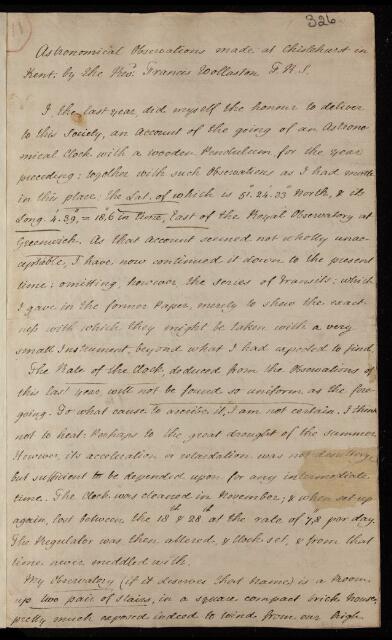 11
326
Astronomical Observations made at Chislehurst in
Kent. by the Revd. Francis Wollaston F.R.S.
I, the last year, did myself the honour to deliver
to this Society, an Account of the going of an Astrono-
mical Clock with a wooden Pendulum for the year
preceding: together with such Observations as I had made
in this place; the Lat. of which is 51°.24'.33" North, & its
Long. 4'.39" = 18",6 in time, East of the Royal Observatory at
Greenwich. As that account seemed not wholly unac-
ceptable, I have now continued it down to the present
time: omitting, however the series of Transits; which
I gave in the former Paper, merely to shew the exact-
ness with which they might be taken with a very
small Instrument, beyond what I had expected to find.
The Rate of the Clock, deduced from the Observations of
this last year, will not be found so uniform as the fore-
going. To what cause to ascribe it, I am not certain. I think
not to heat: Perhaps to the great drought of the summer.
However, its acceleration or retardation was not desultory,
but sufficient to be depended upon for any intermediate
time. The Clock was cleaned in November; & when set up
again, lost between the 18th & 28th at the rate of 7",8 par day.
The Regulator was then altered, & Clock set, & from that
time never meddled with.
My Observatory (if it deserves that Name) is a Room
up two pair of stairs, in a square compact brick house,
pretty much exposed indeed to winds from our high